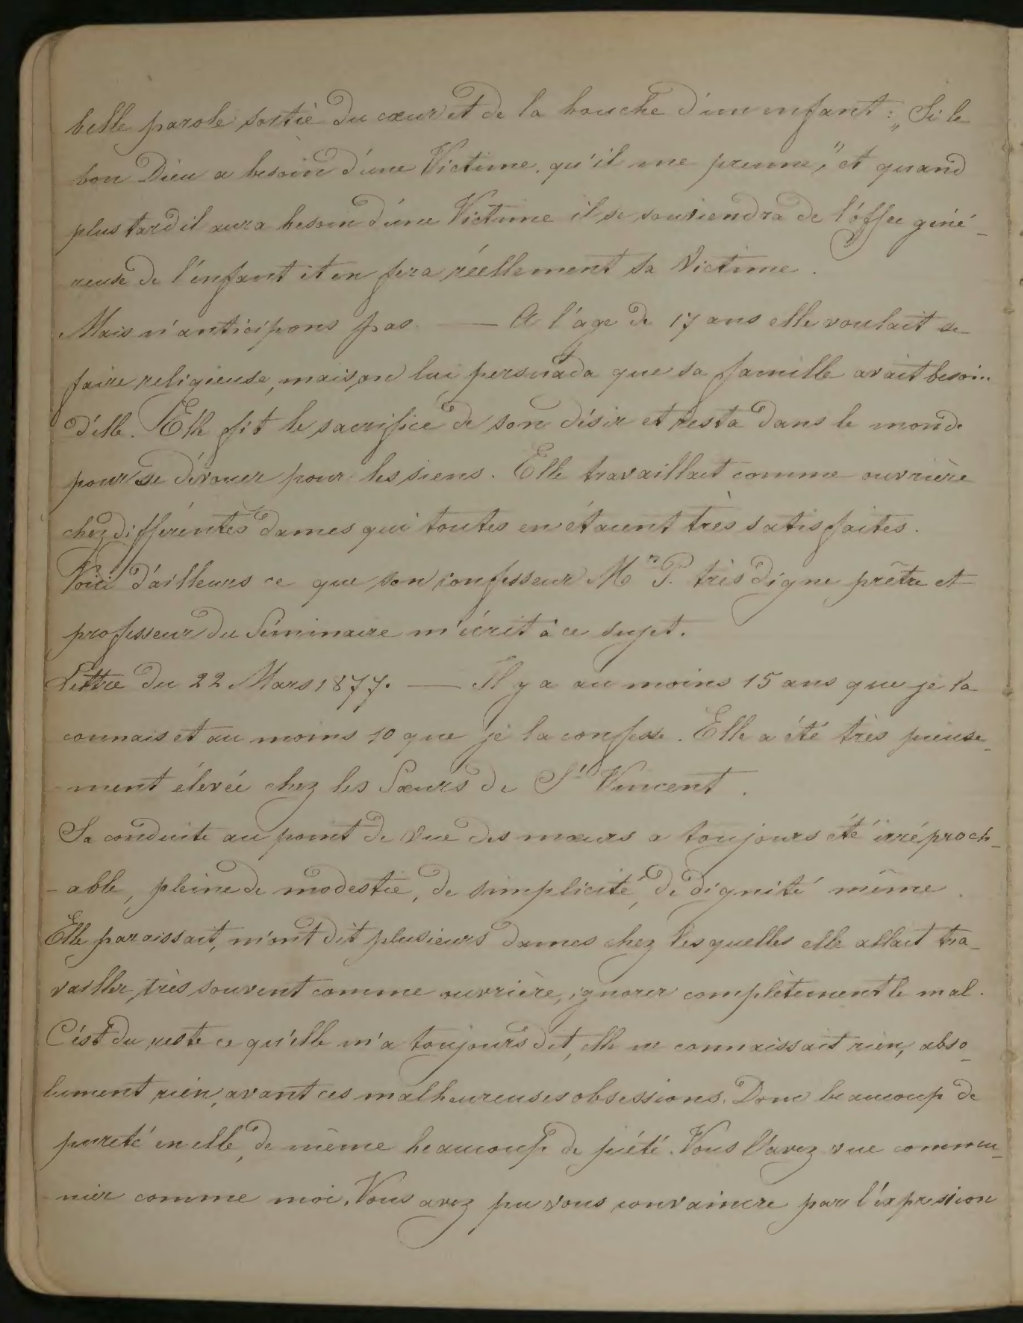 belle parole sortie du cœur et de la bouche d'un enfant : „Si le
bon Dieu a besoin d'une Victime, qu'il me prenne," et quand
plus tard il aura besoin d'une Victime il se souviendra de l'offre géné-
reuse de l'enfant et en fera réellement sa Victime.
Mais n'anticipons pas. — A l'age de 17 ans elle voulait se
faire religieuse, mais on lui persuada que sa famille avait besoin
d'elle. Elle fit le sacrifice de son désir et resta dans le monde
pour se dévouer pour les siens. Elle travaillait comme ouvrière
chez différentes dames qui toutes en étaient très satisfaites.
Voici d'ailleurs ce que son confesseur Mr P. très digne prêtre et
professeur du Séminaire m'écrit à ce sujet.
Lettre du 22 Mars 1877. — Il y a au moins 15 ans que je la
connais et au moins 10 que je la confesse. Elle a été très pieuse-
ment élevée chez les Sœurs de St Vincent.
Sa conduite au point de vue des mœurs a toujours été irréproch-
-able, pleine de modestie, de simplicité, de dignité même.
Elle paraissait, m'ont dit plusieurs dames chez lesquelles elle allait tra-
vailler très souvent comme ouvrière, ignorer complètement le mal.
C'est du reste ce qu'elle m'a toujours dit, elle ne connaissait rien, abso-
lument rien, avant ces malheureuses obsessions. Donc beaucoup de
pureté en elle, de même beaucoup de piété. Vous l'avez vue commu-
-nier comme moi. Vous avez pu vous convaincre par l'expression